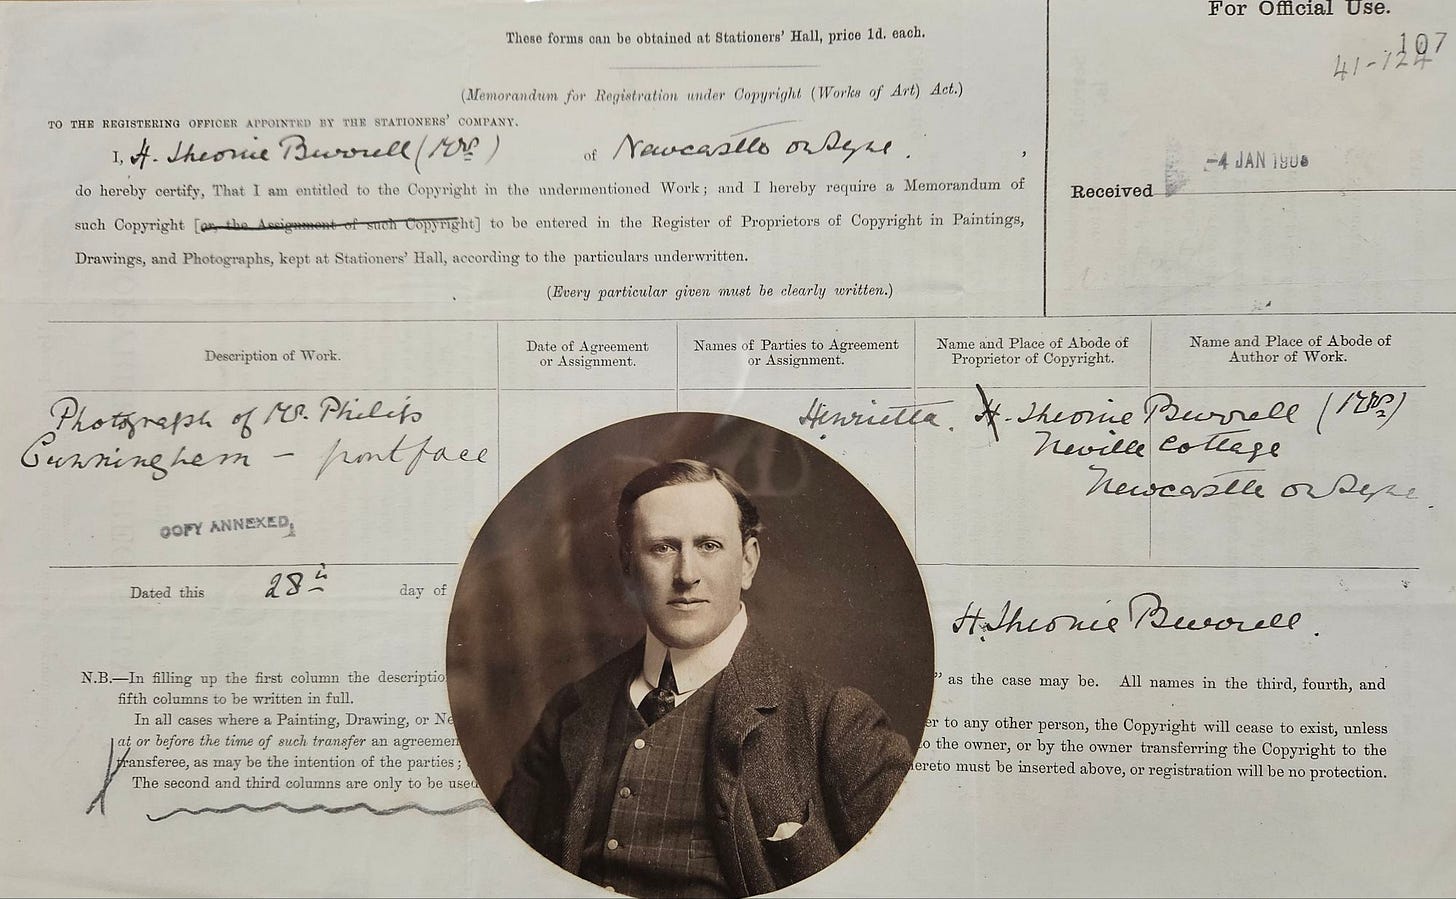 For Official Use.
These forms can be obtained at Stationers' Hall, price 1d. each.
107
41-124
(Memorandum for Registration under Copyright (Works of Art) Act.)
TO THE REGISTERING OFFICER APPOINTED BY THE STATIONERS' COMPANY.
I, H. Theonie Burrell (Mrs) of Newcastle on Tyne. ,
-4 JAN 190
Received
do hereby certify, That I am entitled to the Copyright in the undermentioned Work; and I hereby require a Memorandum of
such Copyright [or, the Assignment of such Copyright] to be entered in the Register of Proprietors of Copyright in Paintings,
Drawings, and Photographs, kept at Stationers' Hall, according to the particulars underwritten.
(Every particular given must be clearly written.)
Description of Work.
Date of Agreement
or Assignment.
Names of Parties to Agreement
or Assignment.
Name and Place of Abode of
Proprietor of Copyright.
Name and Place of Abode of
Author of Work.
Photograph of Mr. Philip
Cunningham - front face
COPY ANNEXED.
Henrietta. H. Theonie Burrell (Mrs)
Neville Cottage
Newcastle on Tyne
Dated this 28th day of
H. Theonie Burrell.
N.B.—In filling up the first column the descriptio
" as the case may be. All names in the third, fourth, and
fifth columns to be written in full.
In all cases where a Painting, Drawing, or Ne
er to any other person, the Copyright will cease to exist, unless
at or before the time of such transfer an agreemen
o the owner, or by the owner transferring the Copyright to the
transferee, as may be the intention of the parties;
hereto must be inserted above, or registration will be no protection.
The second and third columns are only to be used